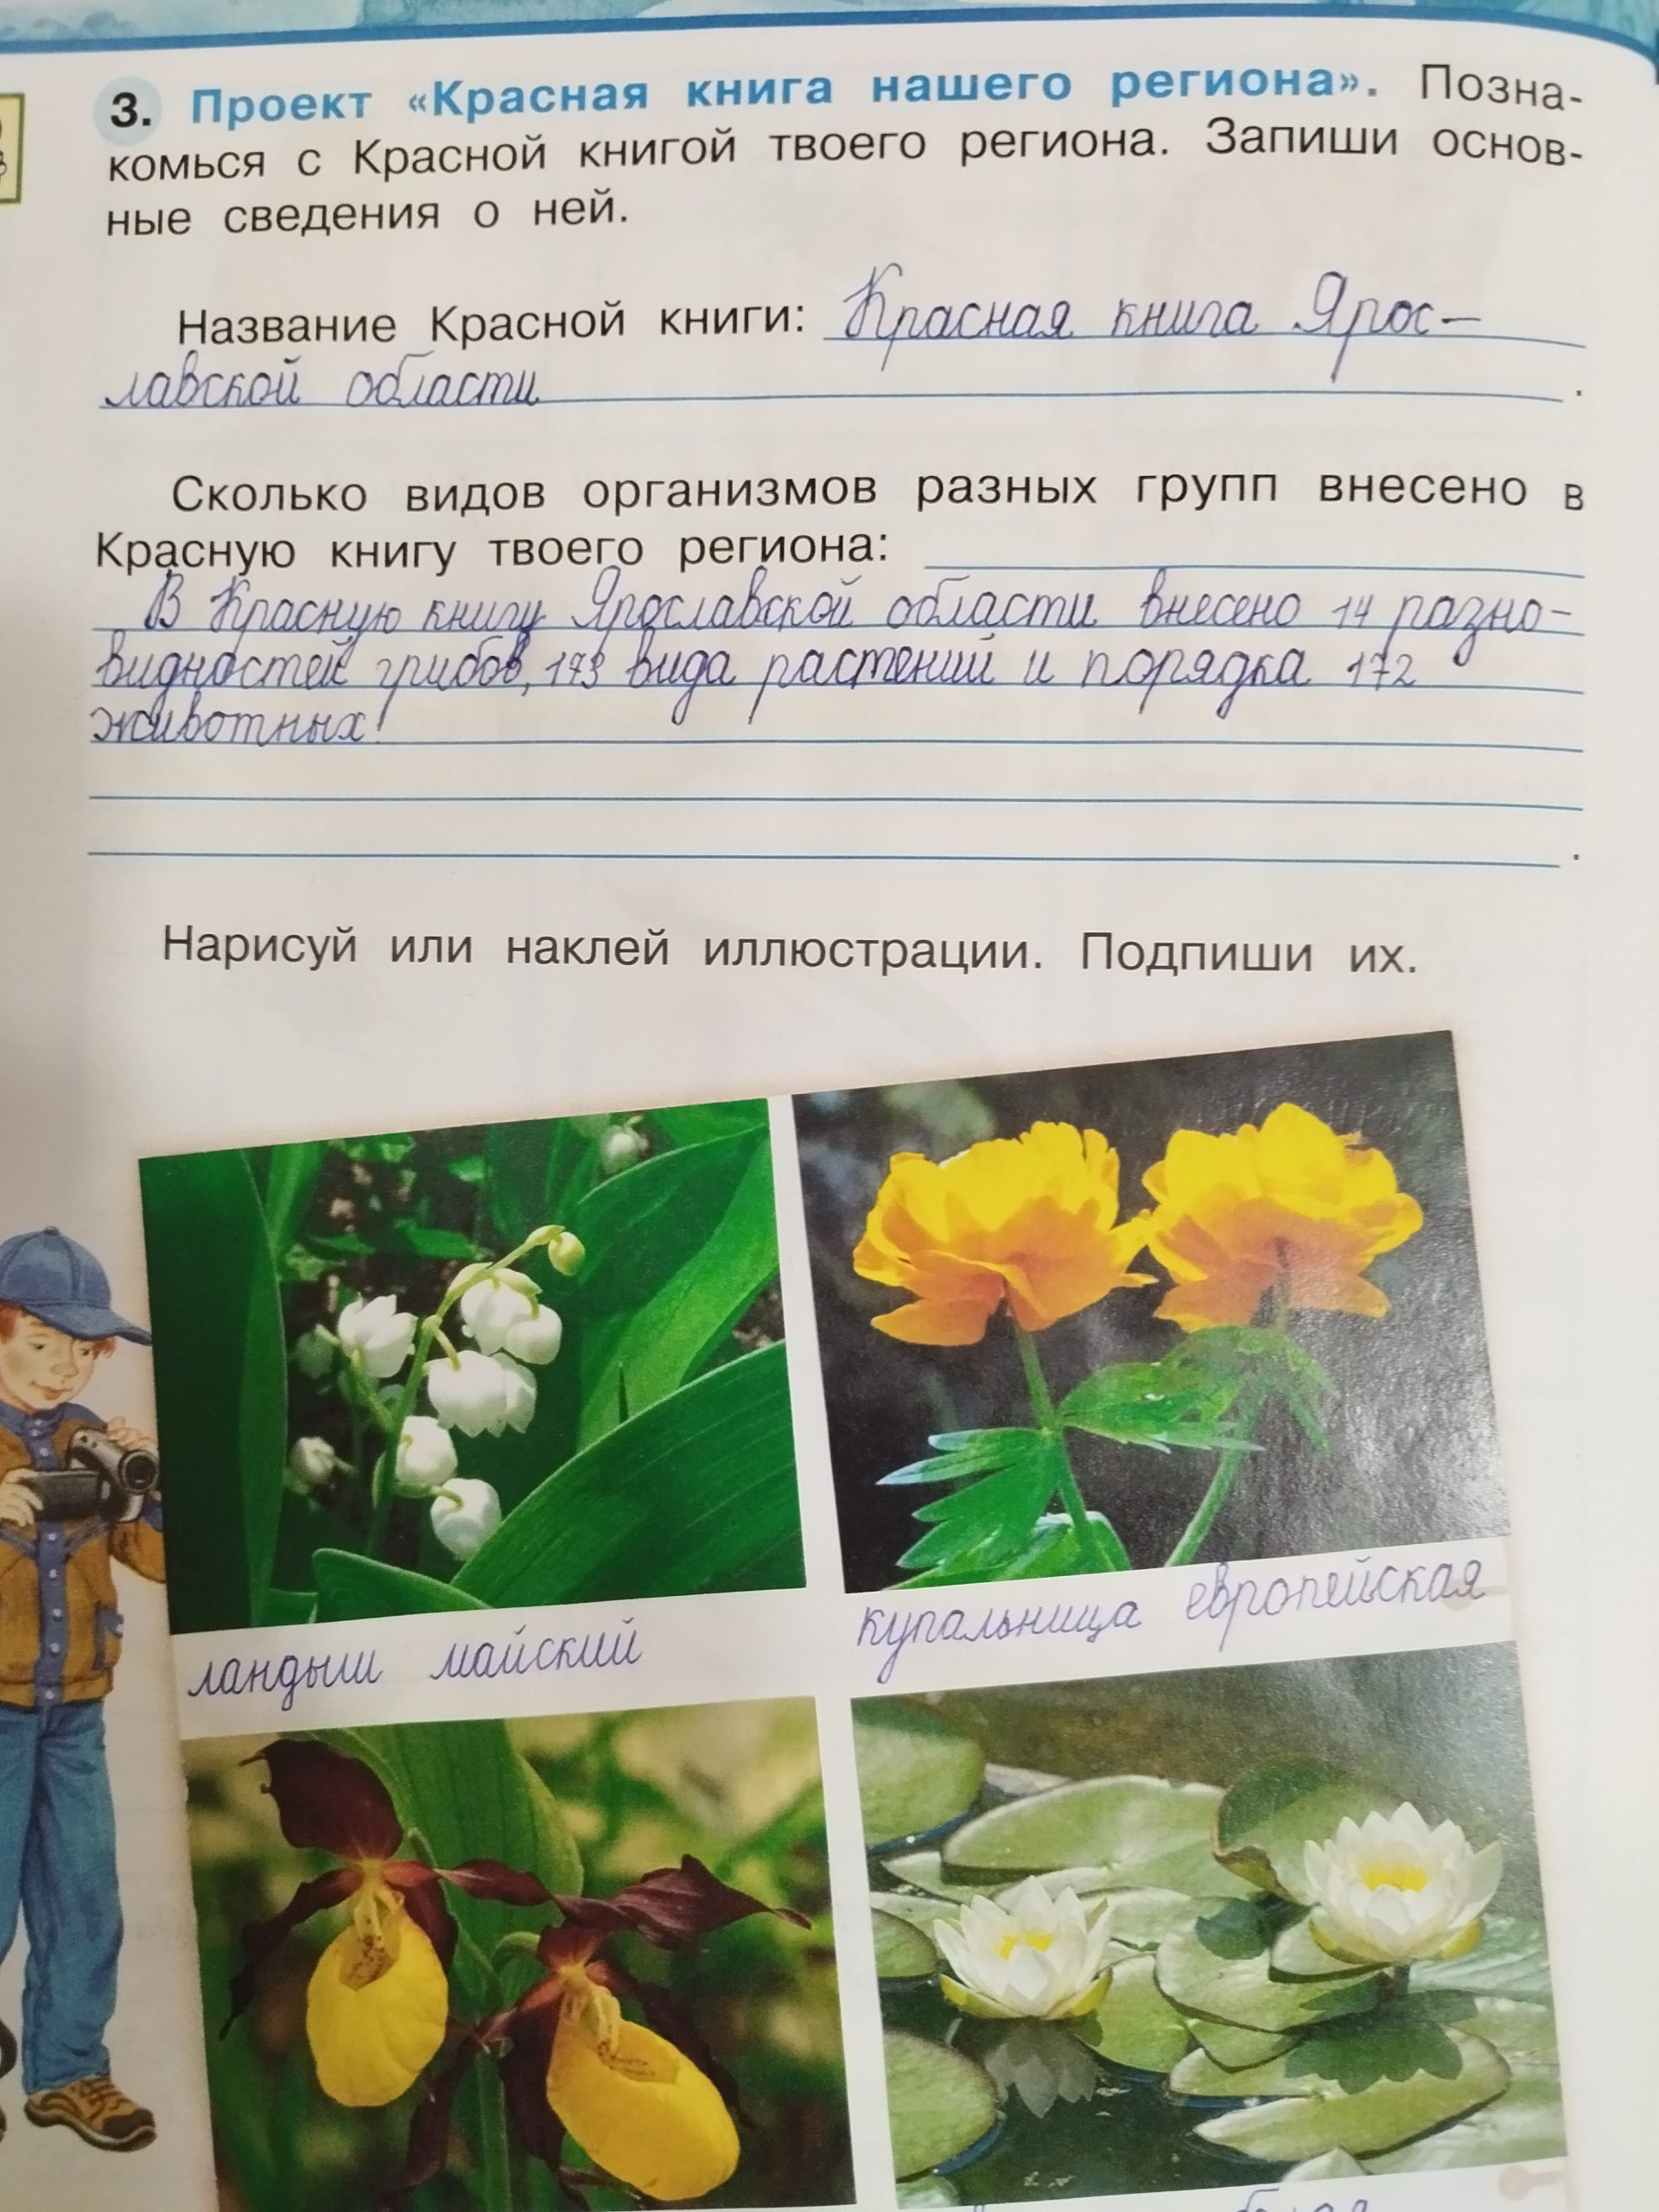 3. Проект «Красная книга нашего региона». Позна-
комься с Красной книгой твоего региона. Запиши основ-
ные сведения о ней.
Название Красной книги: Красная книга Ярос-
лавской области.
Сколько видов организмов разных групп внесено в
Красную книгу твоего региона:
В Красную книгу Ярославской области внесено 14 разно-
видностей грибов, 173 вида растений и порядка 172
животных!
.
Нарисуй или наклей иллюстрации. Подпиши их.
ландыш майский
купальница европейская